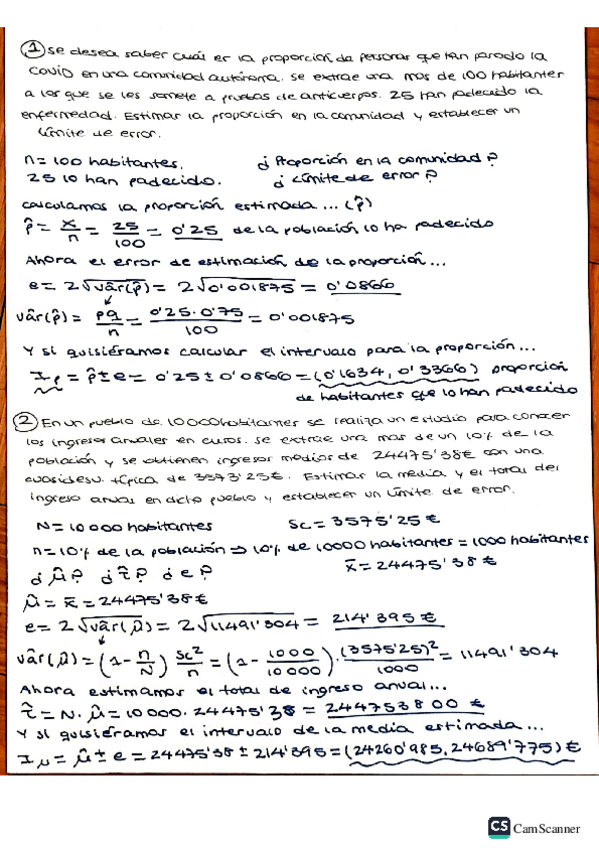 ① Se desea saber cuál es la proporción de personas que han pasado la
covid en una comunidad autónoma. Se extrae una mas de 100 habitantes
a los que se les somete a pruebas de anticuerpos. 25 han padecido la
enfermedad. Estimar la proporción en la comunidad y establecer un
límite de error.
n = 100 habitantes. ¿ Proporción en la comunidad ?
25 lo han padecido. ¿ Límite de error ?
Calculamos la proporción estimada ... (p̂)
p̂ = x/n = 25/100 = 0'25 de la población lo ha padecido
Ahora el error de estimación de la proporción...
e = 2√vâr(p̂) = 2√0'001875 = 0'0866
vâr(p̂) = pq/n = 0'25·0'75/100 = 0'001875
Y si quisiéramos calcular el intervalo para la proporción...
Ip = p̂ ± e = 0'25 ± 0'0866 = (0'1634, 0'3366) proporción
de habitantes que lo han padecido
② En un pueblo de 10000 habitantes se realiza un estudio para conocer
los ingresos anuales en euros. Se extrae una mas de un 10% de la
población y se obtienen ingresos medios de 24475'38€ con una
cuasidesv. típica de 3573'25€. Estimar la media y el total del
ingreso anual en dicho pueblo y establecer un límite de error.
N = 10000 habitantes Sc = 3575'25 €
n = 10% de la población ⇒ 10% de 10000 habitantes = 1000 habitantes
¿ μ̂ ? ¿ τ̂ ? ¿ e ? x̄ = 24475'38 €
μ̂ = x̄ = 24475'38 €
e = 2√vâr(μ̂) = 2√11491'304 = 214'395 €
vâr(μ̂) = (1 - n/N) Sc²/n = (1 - 1000/10000) · (3575'25)²/1000 = 11491'304
Ahora estimamos el total de ingreso anual...
τ̂ = N · μ̂ = 10000 · 24475'38 = 244753800 €
Y si quisiéramos el intervalo de la media estimada...
Iμ = μ̂ ± e = 24475'38 ± 214'395 = (24260'985, 24689'775) €
CS CamScanner